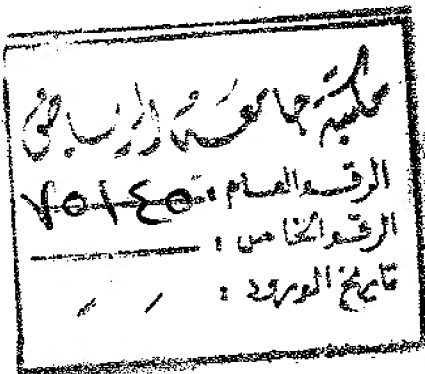 مكتبة جامعة الرياض
الرقم العام : ٧٥١٤٥
الرقم الخاص :
تاريخ الورود : / /